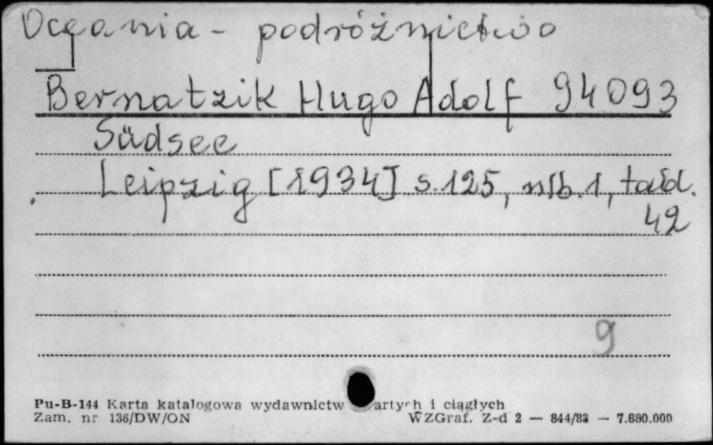 Oceania - podróżnictwo
Bernatzik Hugo Adolf 94093
Südsee
Leipzig [1934] s.125, nlb.1, tabl.
42
9
Pu-B-144 Karta katalogowa wydawnictw artych i ciągłych
Zam. nr 136/DW/ON WZGraf. Z-d 2 — 844/83 — 7.680.000